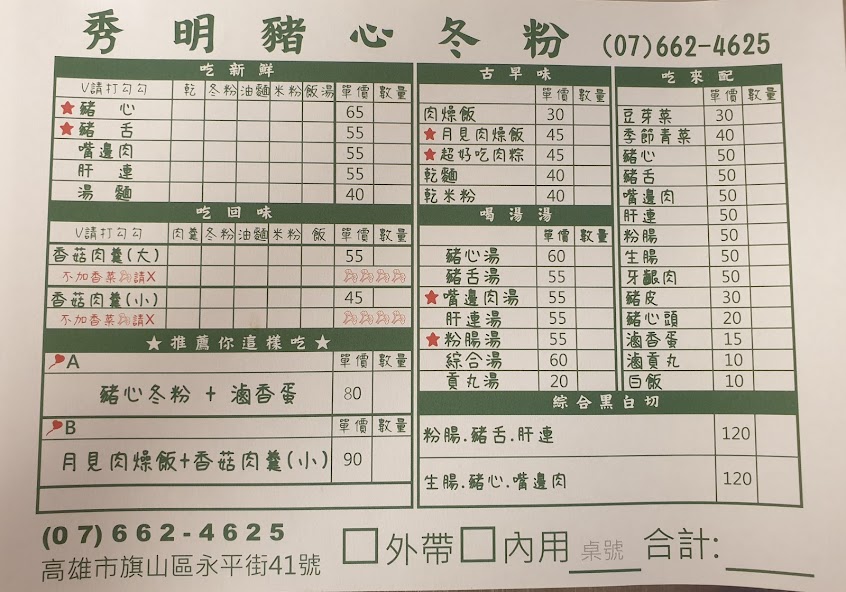 秀明豬心冬粉 (07)662-4625
吃新鮮
V請打勾勾 乾 冬粉 油麵 米粉 飯湯 單價 數量
★豬心 65
★豬舌 55
嘴邊肉 55
肝連 55
湯麵 40
吃回味
V請打勾勾 肉羹 冬粉 油麵 米粉 飯 單價 數量
香菇肉羹(大) 55
不加香菜請X
香菇肉羹(小) 45
不加香菜請X
★推薦你這樣吃★
A 單價 數量
豬心冬粉 + 滷香蛋 80
B 單價 數量
月見肉燥飯+香菇肉羹(小) 90
古早味
單價 數量
肉燥飯 30
★月見肉燥飯 45
★超好吃肉粽 45
乾麵 40
乾米粉 40
喝湯湯
單價 數量
豬心湯 60
豬舌湯 55
★嘴邊肉湯 55
肝連湯 55
★粉腸湯 55
綜合湯 60
貢丸湯 20
吃來配
單價 數量
豆芽菜 30
季節青菜 40
豬心 50
豬舌 50
嘴邊肉 50
肝連 50
粉腸 50
生腸 50
牙齦肉 50
豬皮 30
豬心頭 20
滷香蛋 15
滷貢丸 10
白飯 10
綜合黑白切
粉腸.豬舌.肝連 120
生腸.豬心.嘴邊肉 120
(07)662-4625
高雄市旗山區永平街41號
□外帶□內用 桌號 合計: